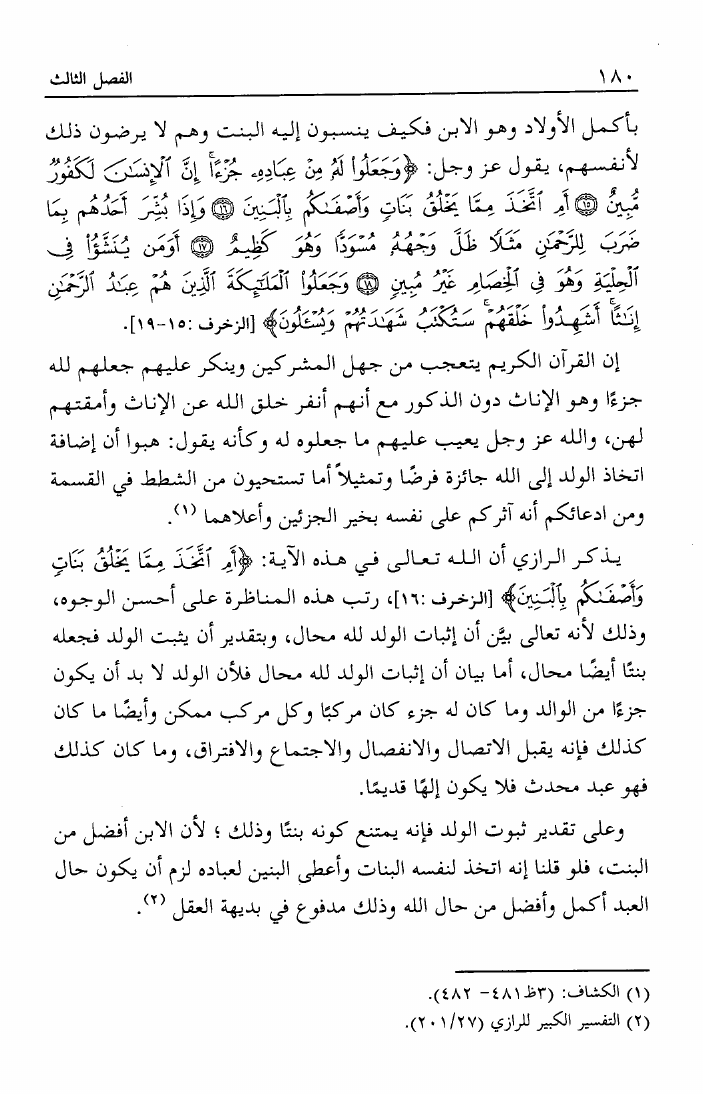 ١٨٠
الفصل الثالث
بأكمل الأولاد وهو الابن فكيف ينسبون إليه البنت وهم لا يرضون ذلك
لأنفسهم، يقول عز وجل: ﴿وَجَعَلُوا۟ لَهُۥ مِنْ عِبَادِهِۦ جُزْءًا ۚ إِنَّ ٱلْإِنسَـٰنَ لَكَفُورٌ
مُّبِينٌ ١٥ أَمِ ٱتَّخَذَ مِمَّا يَخْلُقُ بَنَاتٍ وَأَصْفَىٰكُم بِٱلْبَنِينَ ١٦ وَإِذَا بُشِّرَ أَحَدُهُم بِمَا
ضَرَبَ لِلرَّحْمَـٰنِ مَثَلًا ظَلَّ وَجْهُهُۥ مُسْوَدًّا وَهُوَ كَظِيمٌ ١٧ أَوَمَن يُنَشَّؤُا۟ فِى
ٱلْحِلْيَةِ وَهُوَ فِى ٱلْخِصَامِ غَيْرُ مُبِينٍ ١٨ وَجَعَلُوا۟ ٱلْمَلَـٰٓئِكَةَ ٱلَّذِينَ هُمْ عِبَـٰدُ ٱلرَّحْمَـٰنِ
إِنَـٰثًا ۚ أَشَهِدُوا۟ خَلْقَهُمْ ۚ سَتُكْتَبُ شَهَـٰدَتُهُمْ وَيُسْـَٔلُونَ﴾ [الزخرف :١٥-١٩].
إن القرآن الكريم يتعجب من جهل المشركين وينكر عليهم جعلهم لله
جزءًا وهو الإناث دون الذكور مع أنهم أنفر خلق الله عن الإناث وأمقتهم
لهن، والله عز وجل يعيب عليهم ما جعلوه له وكأنه يقول: هبوا أن إضافة
اتخاذ الولد إلى الله جائزة فرضًا وتمثيلاً أما تستحيون من الشطط في القسمة
ومن ادعائكم أنه آثركم على نفسه بخير الجزئين وأعلاهما (١).
يذكر الرازي أن الله تعالى في هذه الآية: ﴿أَمِ ٱتَّخَذَ مِمَّا يَخْلُقُ بَنَاتٍ
وَأَصْفَىٰكُم بِٱلْبَنِينَ﴾ [الزخرف :١٦]، رتب هذه المناظرة على أحسن الوجوه،
وذلك لأنه تعالى بيَّن أن إثبات الولد لله محال، وبتقدير أن يثبت الولد فجعله
بنتًا أيضًا محال، أما بيان أن إثبات الولد لله محال فلأن الولد لا بد أن يكون
جزءًا من الوالد وما كان له جزء كان مركبًا وكل مركب ممكن وأيضًا ما كان
كذلك فإنه يقبل الاتصال والانفصال والاجتماع والافتراق، وما كان كذلك
فهو عبد محدث فلا يكون إلهًا قديمًا.
وعلى تقدير ثبوت الولد فإنه يمتنع كونه بنتًا وذلك ؛ لأن الابن أفضل من
البنت، فلو قلنا إنه اتخذ لنفسه البنات وأعطى البنين لعباده لزم أن يكون حال
العبد أكمل وأفضل من حال الله وذلك مدفوع في بديهة العقل (٢).
(١) الكشاف: (٣ظ٤٨١- ٤٨٢).
(٢) التفسير الكبير للرازي (٢٠١/٢٧).